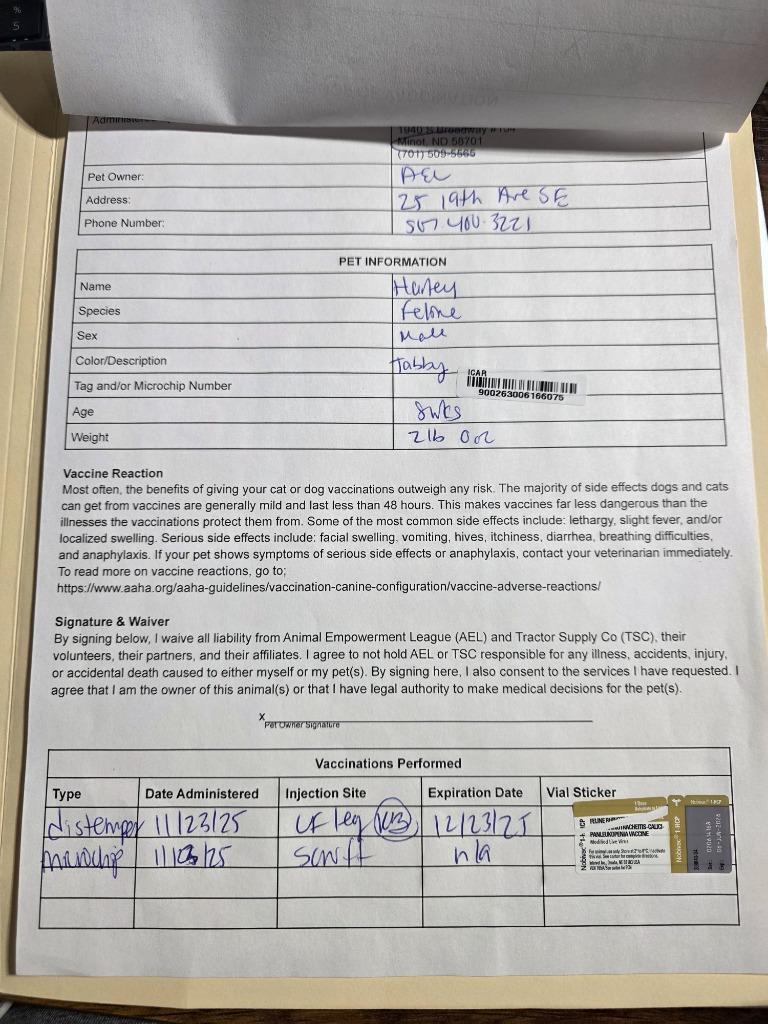 %
5
1940 S Broadway #104
Minot, ND 58701
(701) 509-5565
Pet Owner: AEL
Address: 25 19th Ave SE
Phone Number: 507-400-3221
PET INFORMATION
Name Harley
Species Feline
Sex Male
Color/Description Tabby
ICAR
Tag and/or Microchip Number 900263006166075
Age 8wks
Weight 2lb 0oz
Vaccine Reaction
Most often, the benefits of giving your cat or dog vaccinations outweigh any risk. The majority of side effects dogs and cats
can get from vaccines are generally mild and last less than 48 hours. This makes vaccines far less dangerous than the
illnesses the vaccinations protect them from. Some of the most common side effects include: lethargy, slight fever, and/or
localized swelling. Serious side effects include: facial swelling, vomiting, hives, itchiness, diarrhea, breathing difficulties,
and anaphylaxis. If your pet shows symptoms of serious side effects or anaphylaxis, contact your veterinarian immediately.
To read more on vaccine reactions, go to;
https://www.aaha.org/aaha-guidelines/vaccination-canine-configuration/vaccine-adverse-reactions/
Signature & Waiver
By signing below, I waive all liability from Animal Empowerment League (AEL) and Tractor Supply Co (TSC), their
volunteers, their partners, and their affiliates. I agree to not hold AEL or TSC responsible for any illness, accidents, injury,
or accidental death caused to either myself or my pet(s). By signing here, I also consent to the services I have requested. I
agree that I am the owner of this animal(s) or that I have legal authority to make medical decisions for the pet(s).
X
Pet Owner Signature
Vaccinations Performed
Type Date Administered Injection Site Expiration Date Vial Sticker
distemper 11/23/25 LF leg 12/23/25
microchip 11/23/25 scruff n/a
Nobivac® 1-HCP
FELINE
CALICI-
PANLEUKOPENIA VACCINE
Modified Live Virus
Nobivac® 1-HCP